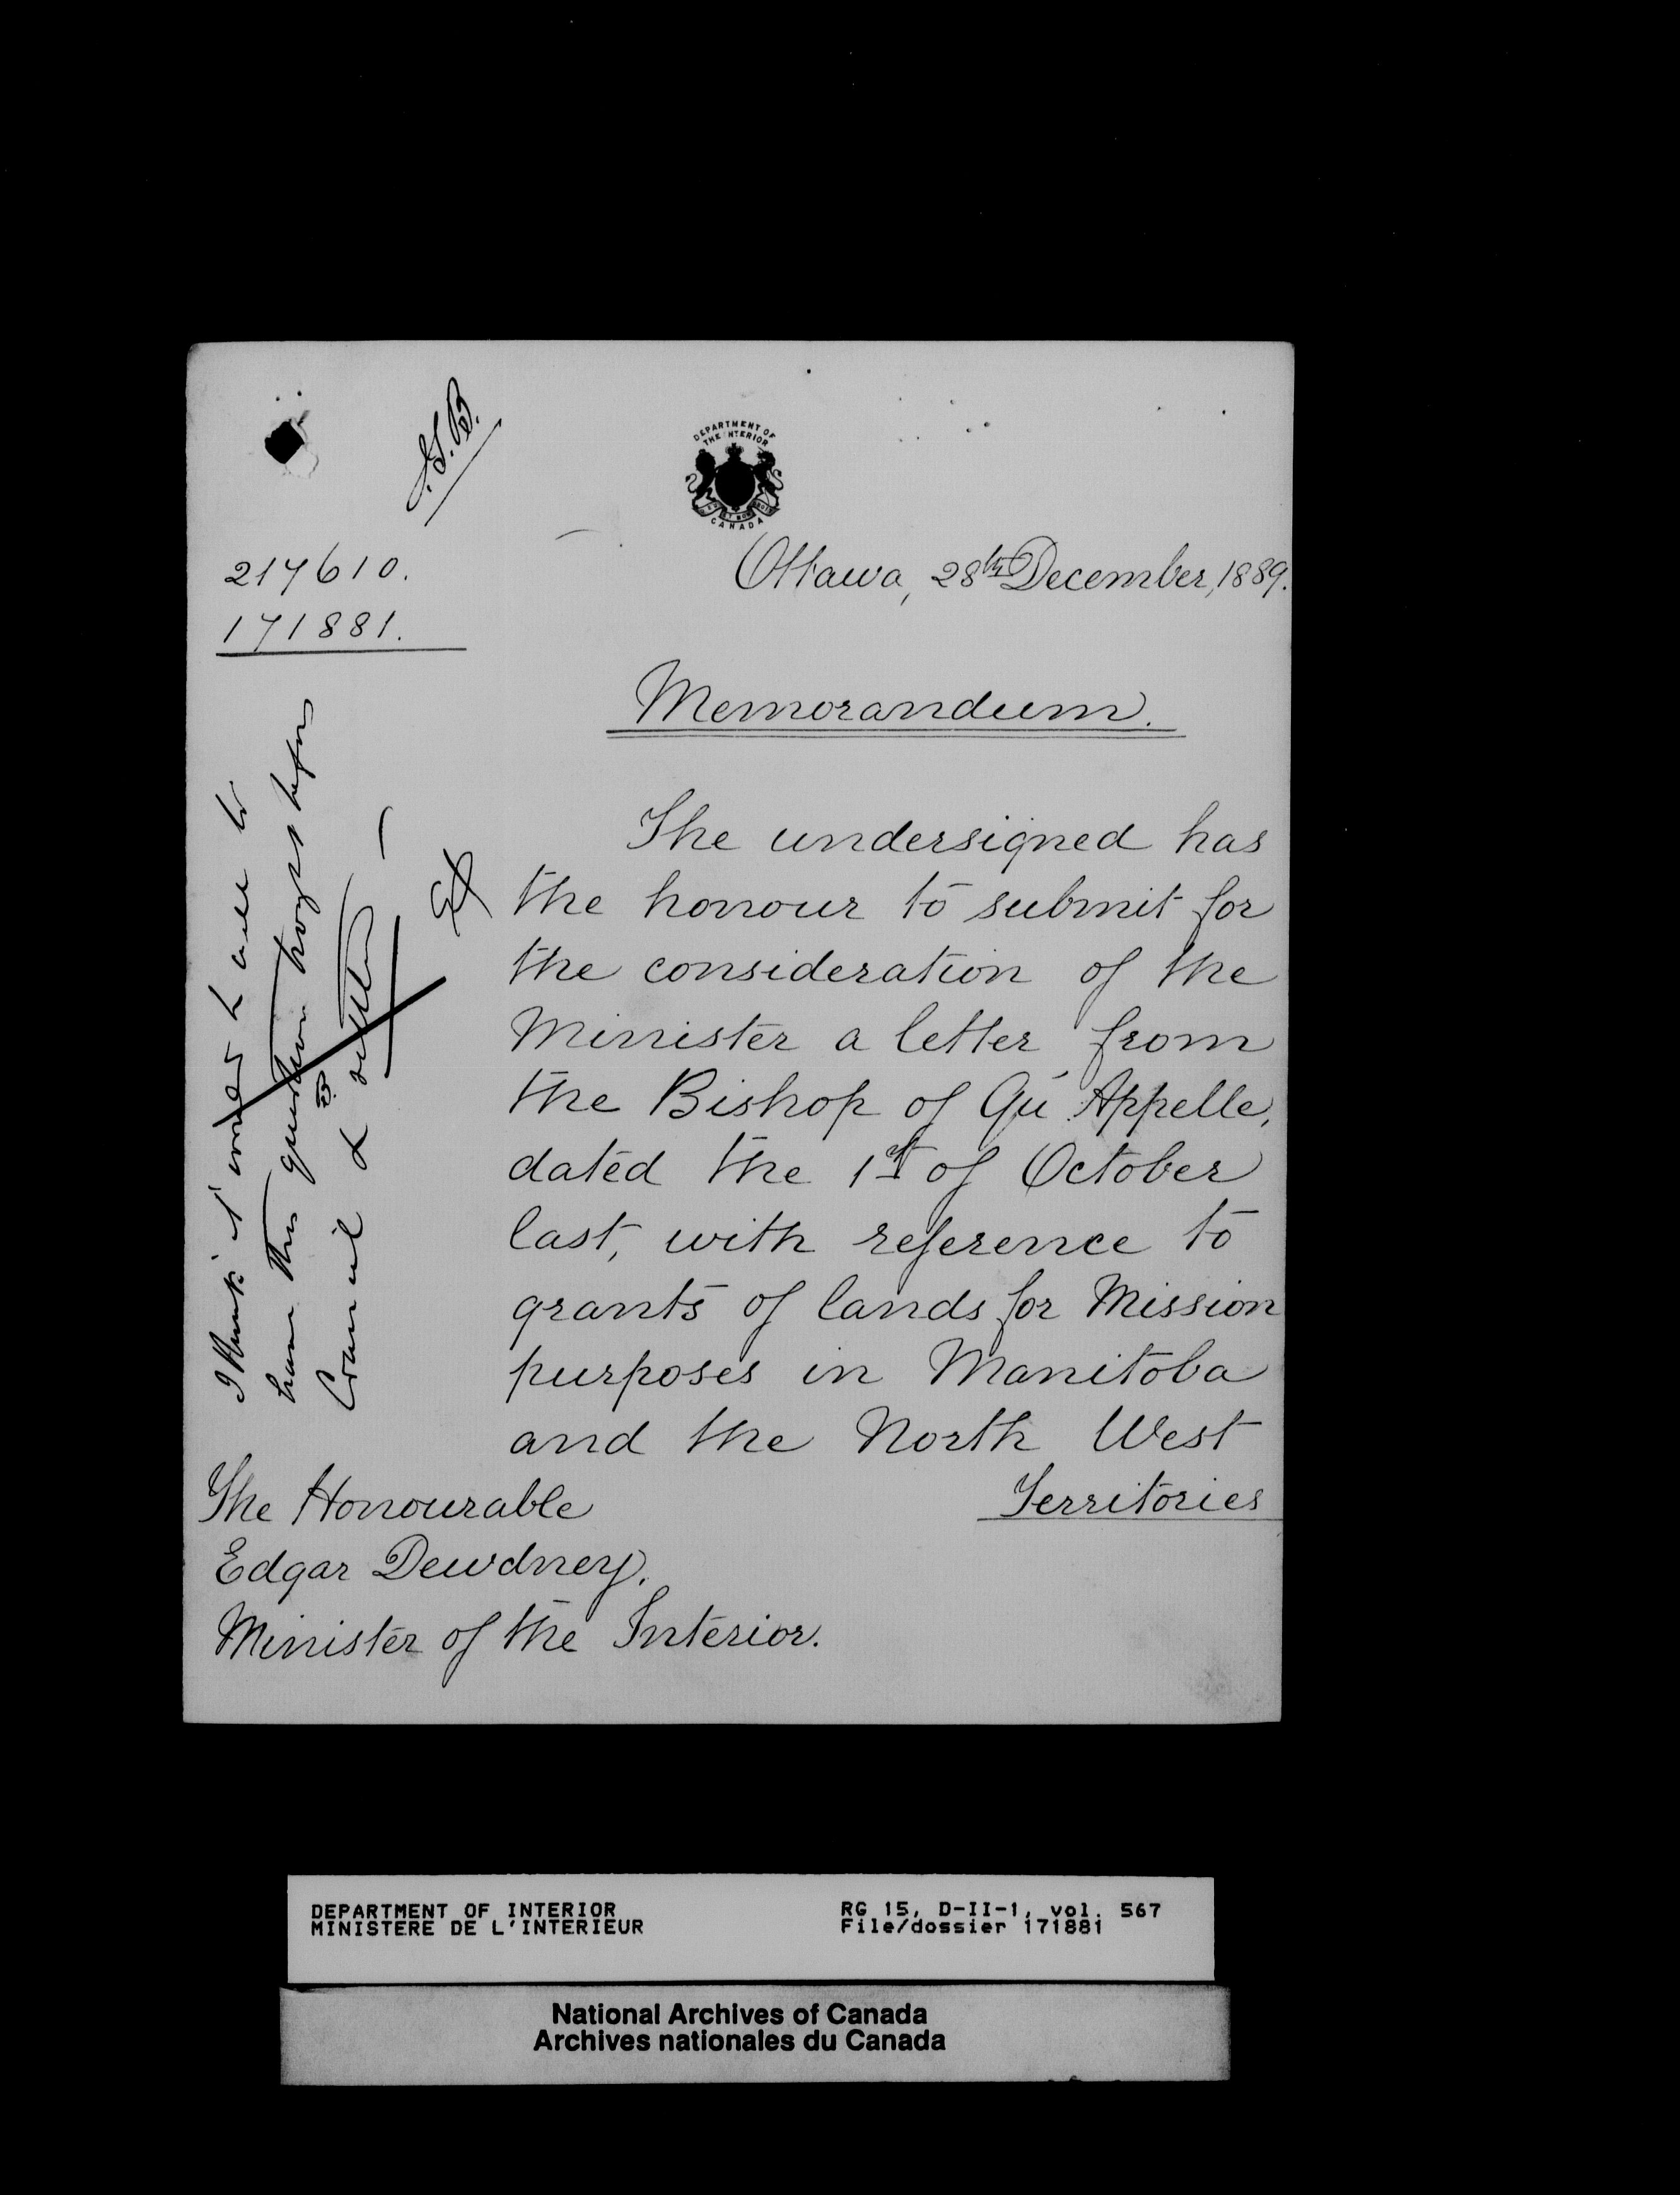 J.S.B.
DEPARTMENT OF
THE INTERIOR
CANADA
217610.
171881.
Ottawa, 28th December, 1889.
Memorandum.
The undersigned has
the honour to submit for
the consideration of the
Minister a letter from
the Bishop of Qu'Appelle,
dated the 1st of October
last, with reference to
grants of lands for Mission
purposes in Manitoba
and the North West
Territories
I think it would be well to
have this question brought before
Council & settled
ED
The Honourable
Edgar Dewdney,
Minister of the Interior.
DEPARTMENT OF INTERIOR
MINISTERE DE L'INTERIEUR
RG 15, D-II-1, vol. 567
File/dossier 171881
National Archives of Canada
Archives nationales du Canada